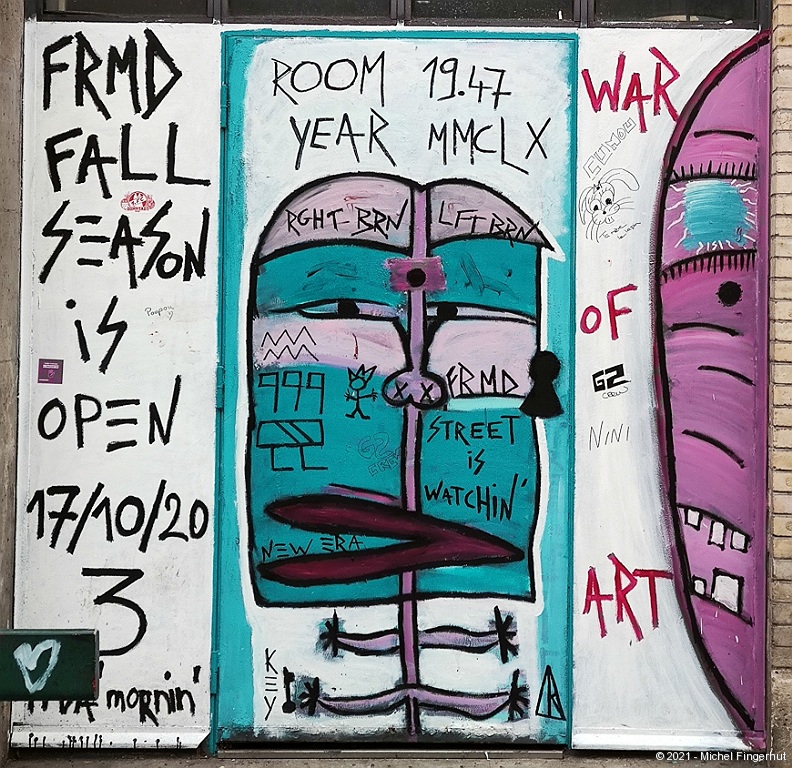 FRMD
FALL
SEASON
iS
OPEN
17/10/20
3
mornin'
ROOM 19.47
YEAR MMCLX
RGHT-BRN
LFT BRN
999
FRMD
STREET
iS
WATCHIN'
NEW ERA
KEY
WAR
OF
ART
GZ
CREW
NINI
© 2021 - Michel Fingerhut